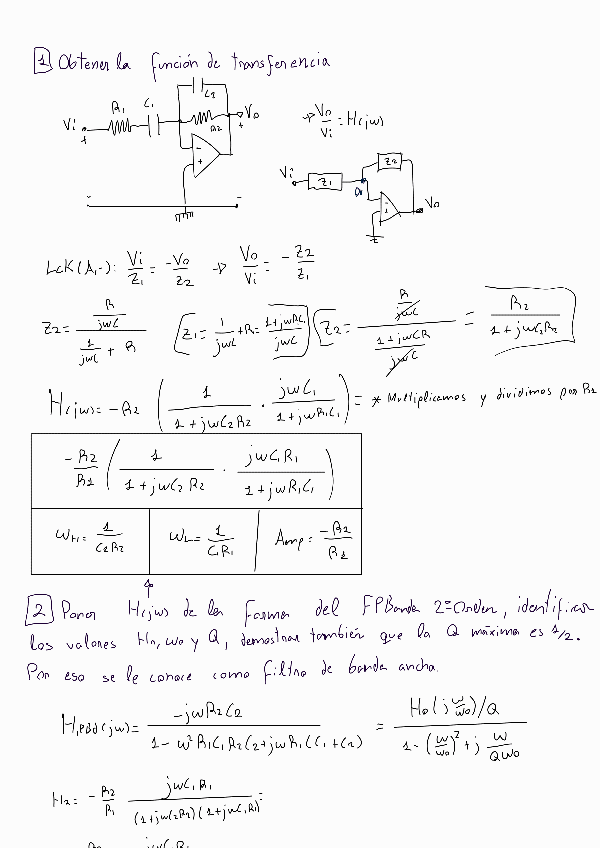 1 Obtener la función de transferencia
R1 C1 C2 R2 Vi Vo
+ - + +
→ Vo/Vi = H(jω)
Vi Z1 Z2 Vo
LCK(A,-): Vi/Z1 = -Vo/Z2 → Vo/Vi = -Z2/Z1
Z2 = (R/jωC)/(1/jωC + R) Z1 = 1/jωC + R = (1+jωRC1)/jωC Z2 = (R/jωC)/((1+jωCR)/jωC) = R2/(1+jωC2R2)
H(jω) = -R2 (1/(1+jωC2R2) · jωC1/(1+jωR1C1)) = * Multiplicamos y dividimos por R1
-R2/R1 (1/(1+jωC2R2) · jωC1R1/(1+jωR1C1))
ωH = 1/C2R2 ωL = 1/C1R1 Amp = -R2/R1
2 Poner H(jω) de la forma del FPBanda 2º Orden, identificar
los valores Ho, ωo y Q, demostrar también que la Q máxima es 1/2.
Por eso se le conoce como filtro de banda ancha.
(jω) = -jωR2C2/(1-ω²R1C1R2C2+jωR1(C1+C2)) = Ho(jω/ωo)/Q/(1-(ω/ωo)²+jω/Qωo)
H2 = -R2/R1 jωC1R1/((1+jωC2R2)(1+jωC1R1)) =
jωC1R1